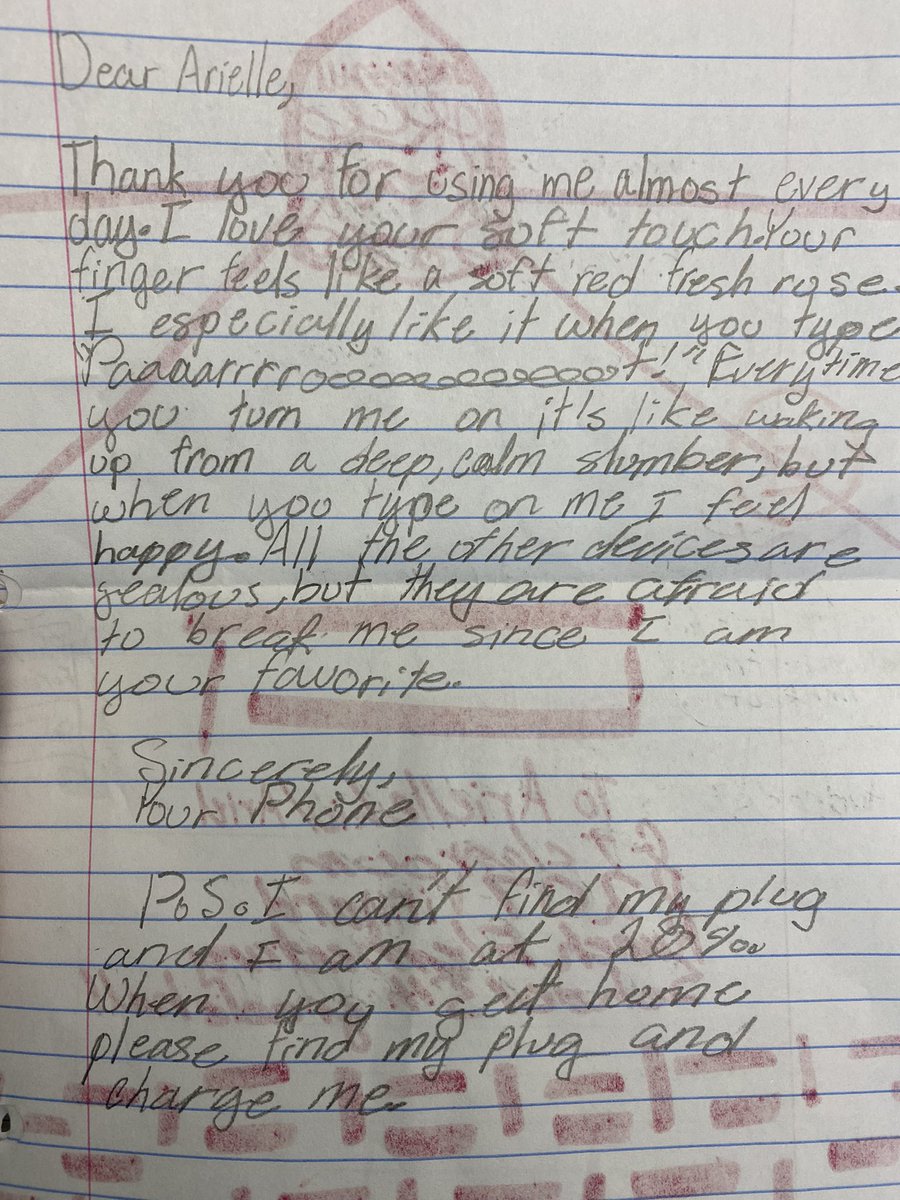 Dear Arielle,
Thank you for using me almost every
day. I love your soft touch. Your
finger feels like a soft red fresh rose.
I especially like it when you type
"Paaaarrrroooooooooooot!" Everytime
you turn me on it's like waking
up from a deep, calm slumber, but
when you type on me I feel
happy. All the other devices are
jealous, but they are afraid
to break me since I am
your favorite.
Sincerely,
Your Phone
P.S. I can't find my plug
and I am at 20%.
When you get home
please find my plug and
charge me.
To Arielle